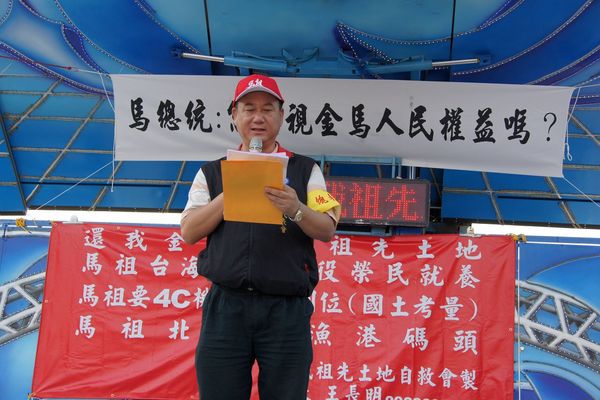 馬總統: 視金馬人民權益嗎?
祖先
還我金 祖先土地
馬祖台海 役榮民就養
馬祖要4C機 位(國土考量)
馬祖北 漁港碼頭
祖先土地自救會製
王長明